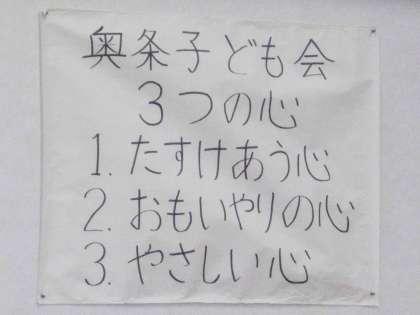 奥条子ども会
3つの心
1.たすけあう心
2.おもいやりの心
3.やさしい心